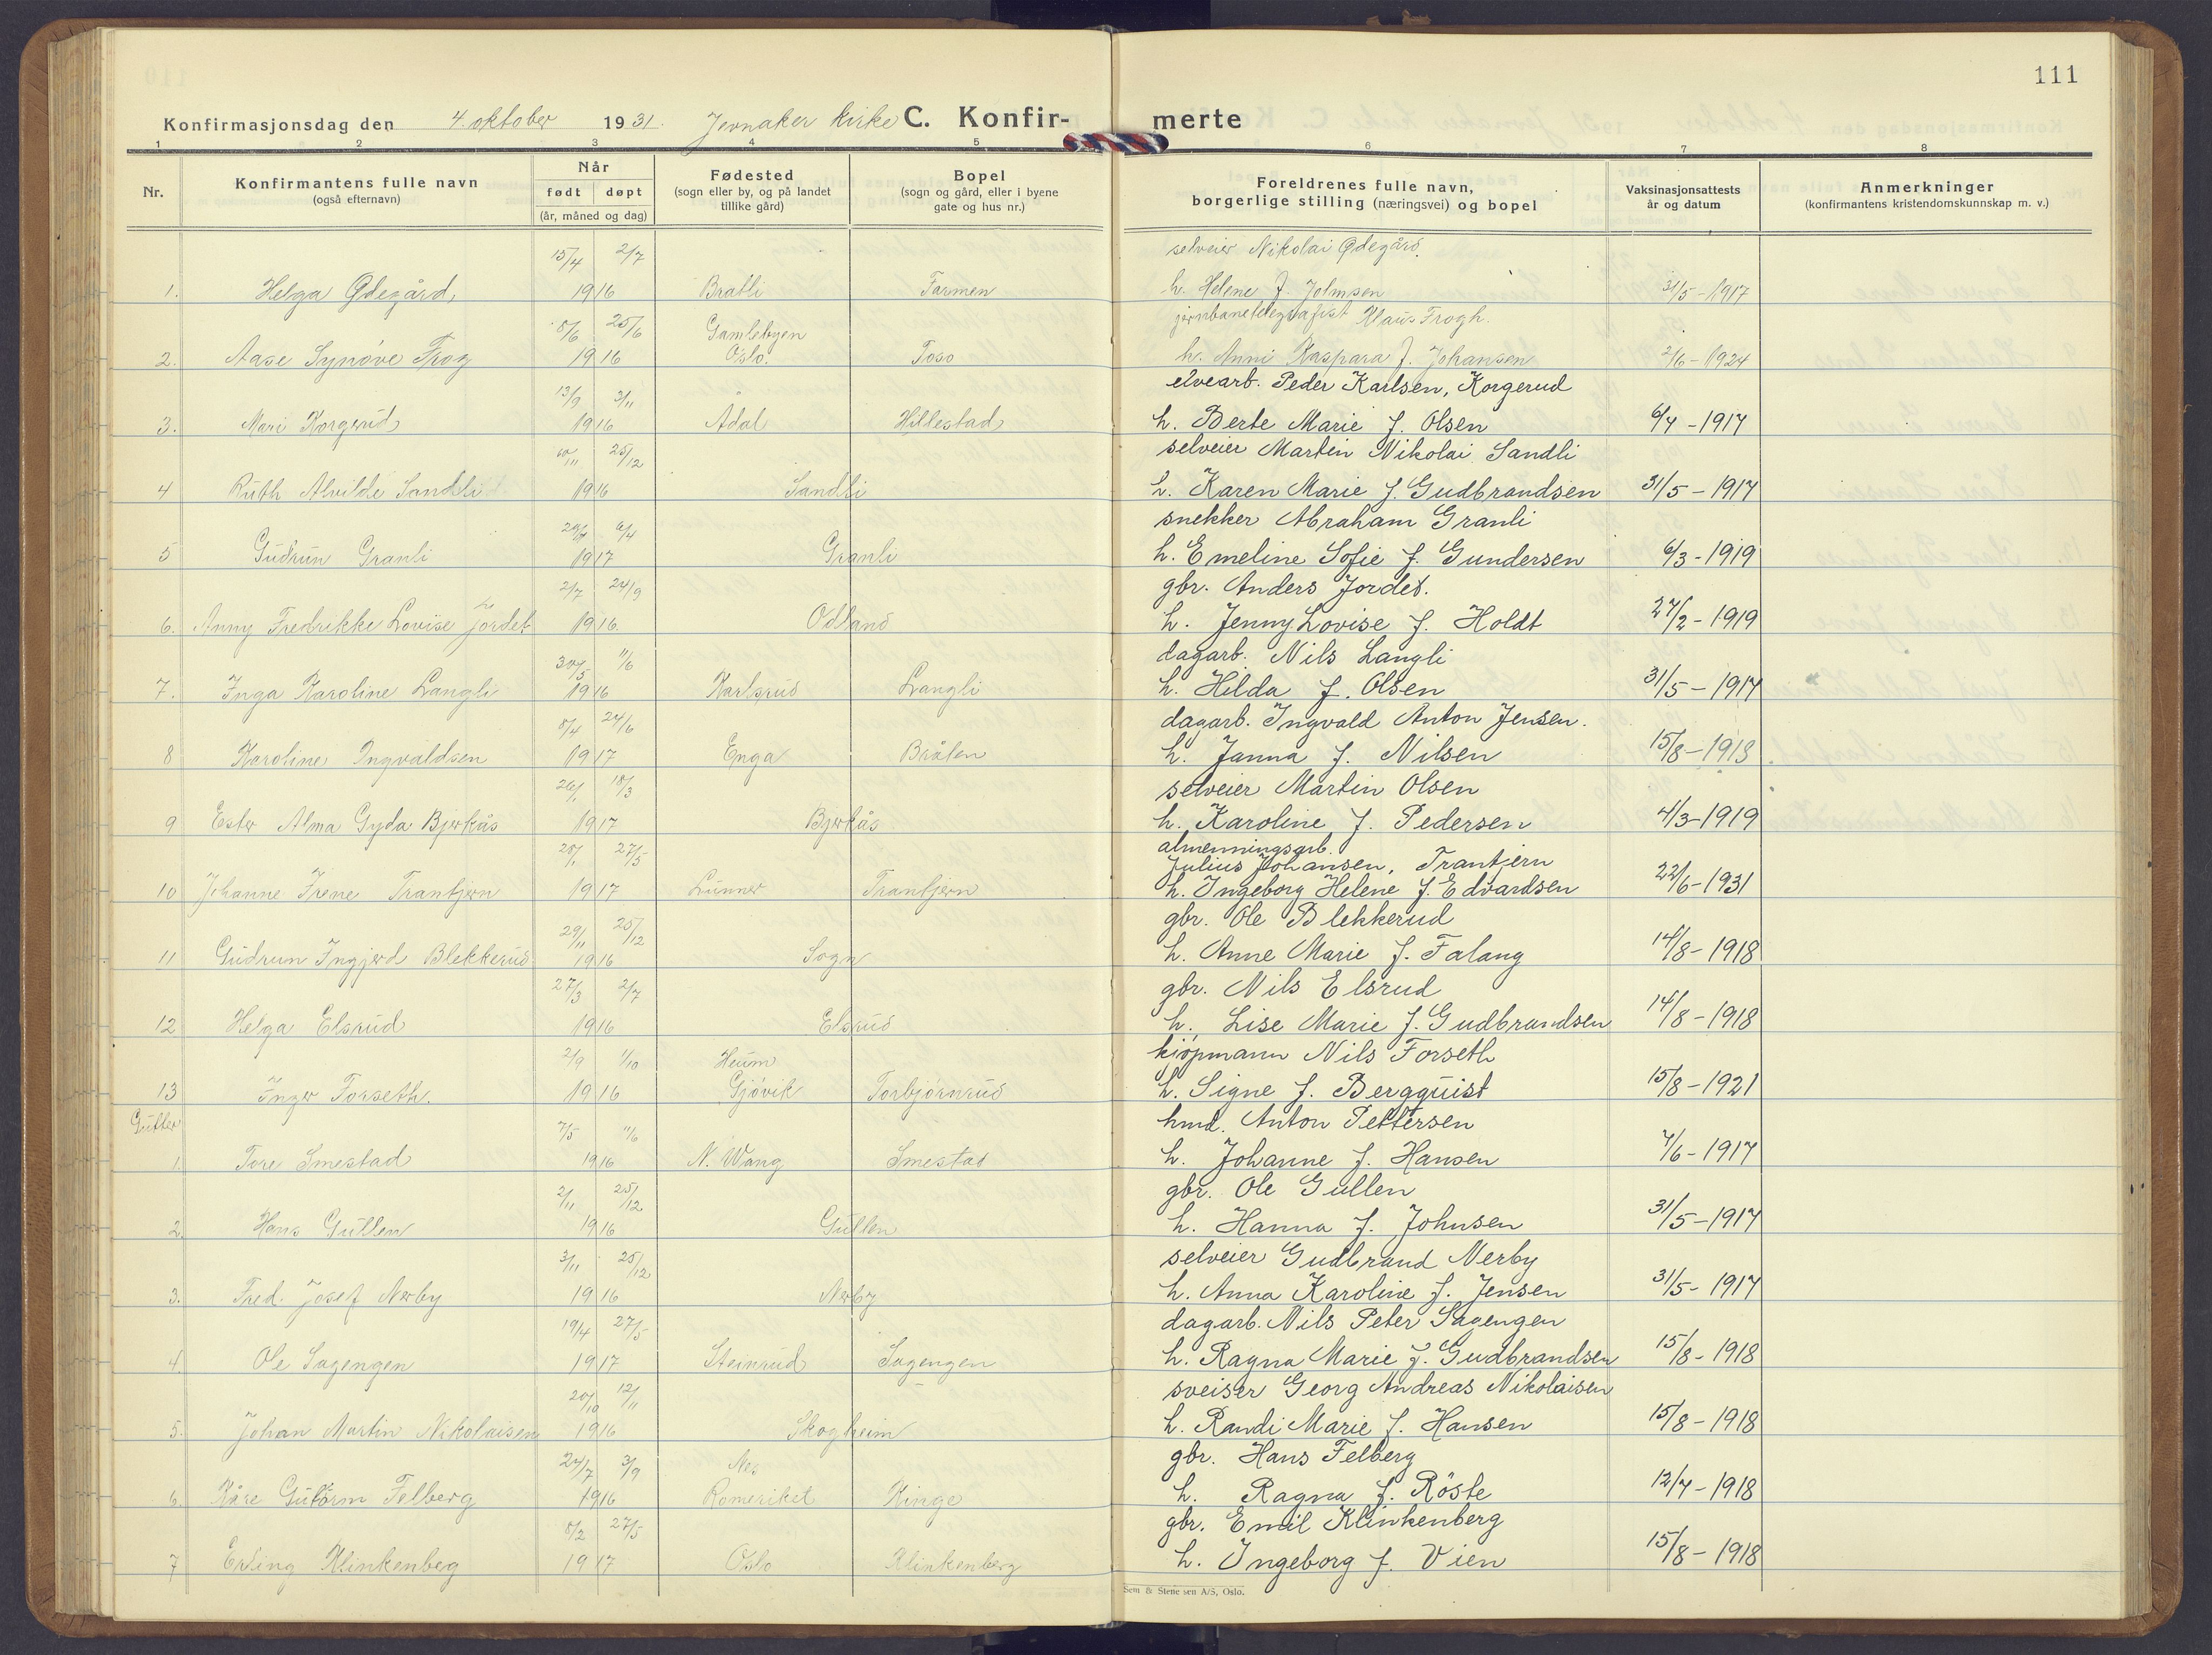 111
Konfirmasjonsdag den 4. oktober 1931. Jevnaker kirke C. Konfir- merte
1 2 3 4 5 6 7 8
Nr. Konfirmantens fulle navn (også efternavn) Når født døpt (år, måned og dag) Fødested (sogn eller by, og på landet tillike gård) Bopel (sogn og gård, eller i byene gate og hus nr.) Foreldrenes fulle navn, borgerlige stilling (næringsvei) og bopel Vaksinasjonsattests år og datum Anmerkninger (konfirmantens kristendomskunnskap m. v.)
15/4 2/7 selveier Nikolai Ødegård.
1. Helga Ødegård, 1916 Bratli Farmen h. Helene f. Johnsen 31/5-1917
8/6 25/6 Gamlebyen jernbanetelegrafist Klaus Frogh.
2. Aase Synöve Frog 1916 Oslo. Toso h. Anni Kaspara f. Johansen 2/6-1924
13/9 3/11 elvearb. Peder Karlsen, Korgerud
3. Mari Korgerud 1916 Ådal Hillestad h. Berte Marie f. Olsen 6/7-1917
10/11 25/12 selveier Martin Nikolai Sandli
4 Ruth Alvilde Sandli 1916 Sandli h. Karen Marie f. Gudbrandsen 31/5-1917
6/4 snekker Abraham Granli
5 Gudrun Granli 1917 Granli h. Emeline Sofie f. Gundersen 6/3-1919
2/7 24/9 gbr. Anders Jordet.
6. Anny Fredrikke Lovise Jordet 1916. Odland h. Jenny Lovise f. Holdt 27/2-1919
30/5 11/6 dagarb. Nils Langli
7. Inga Karoline Langli 1916 Karlsrud Langli h. Hilda f. Olsen 31/5-1917
8/4 24/6 dagarb. Ingvald Anton Jensen.
8 Karoline Ingvaldsen 1917 Enga Bråten h. Janna f. Nilsen 15/8-1918
26/1 18/3 selveier Martin Olsen
9 Ester Alma Gyda Bjerkås 1917 Bjerkås h. Karoline f. Pedersen 4/3-1919
almenningsarb.
20/1 27/5 Julius Johansen, Trantjern
10 Johanne Irene Trantjern 1917 Lunner Trantjern h. Ingeborg Helene f. Edvardsen 22/6-1931
29/11 25/12 gbr. Ole Blekkerud
11 Gudrun Ingjerd Blekkerud 1916 Sogn h. Anne Marie f. Falang 14/8-1918
27/3 2/7 gbr. Nils Elsrud
12 Helga Elsrud 1916 Elsrud h. Lise Marie f. Gudbrandsen 14/8-1918
2/9 1/10 Heum kjöpmann Nils Forseth
13 Inger Forseth. 1916 Gjövik Torbjörnrud h. Signe f. Bergquist 15/8-1921
Gutter 7/5 11/6 hmd. Anton Pettersen
1. Tore Smestad 1916 N. Wang Smestad h. Johanne f. Hansen 7/6-1917
2/11 25/12 gbr. Ole Gullen
2. Hans Gullen 1916 Gullen h. Hanna f. Johnsen 31/5-1917
3/11 25/12 selveier Gudbrand Nerby
3. Fred. Josef Nerby 1916 Nerby h. Anna Karoline f. Jensen 31/5-1917
19/4 27/5 dagarb. Nils Peter Sagengen
4. Ole Sagengen 1917 Steinrud Sagengen h. Ragna Marie f. Gudbrandsen 15/8-1918
20/10 12/11 sveiser Georg Andreas Nikolaisen
5. Johan Martin Nikolaisen 1916 Skogheim h. Randi Marie f. Hansen 15/8-1918
24/7 3/9 Nes gbr. Hans Felberg
6. Kåre Gutorm Felberg 1916 Romeriket Kinge h. Ragna f. Röste 12/7-1918
8/2 27/5 gbr. Emil Klinkenberg
7 Erling Klinkenbeg 1917 Oslo Klinkenberg h. Ingeborg f. Vien 15/8-1918
Sem & Stenersen A/S, Oslo.